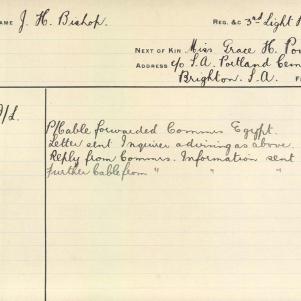 NAME J. H. Bishop. REG. &C 3rd Light
NEXT OF KIN Miss Grace H.
ADDRESS c/o S.A. Portland Cem
Brighton. S.A.
P/Cable forwarded Commrs Egypt.
Letter sent Inquirer advising as above.
Reply from Commrs. Information sent
further Cable from " " "